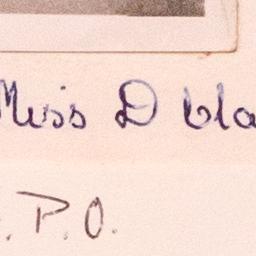 Miss D bla
. P. O.